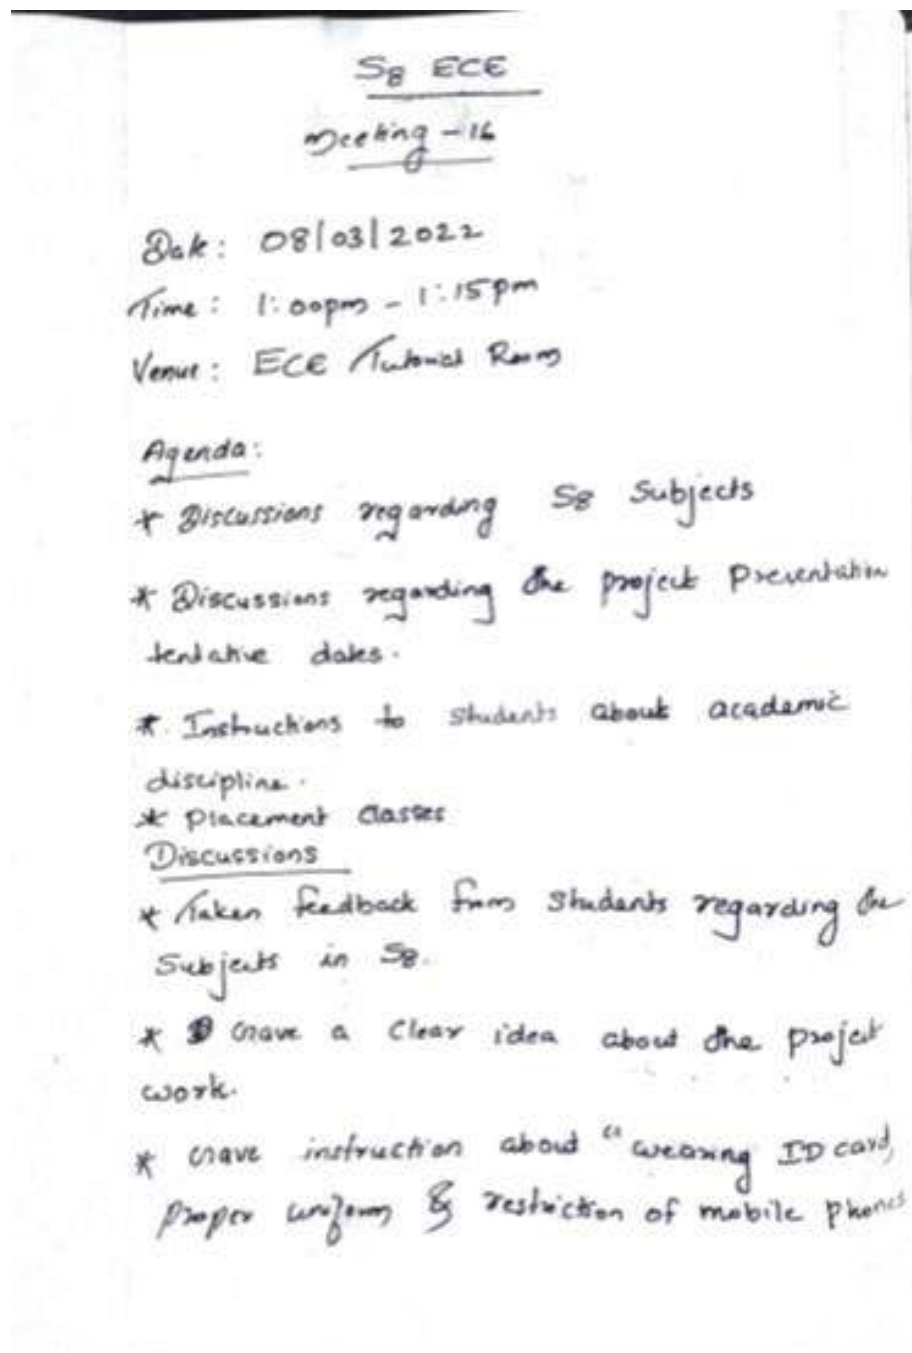 S8 ECE
Meeting - 16
Date: 08/03/2022
Time: 1:00pm - 1:15pm
Venue: ECE Tutorial Room
Agenda:
* Discussions regarding S8 Subjects
* Discussions regarding the project Presentation
tentative dates.
* Instructions to students about academic
discipline.
* Placement classes
Discussions
* Taken feedback from students regarding the
Subjects in S8.
* Gave a clear idea about the project
work.
* Gave instruction about "wearing ID card,
proper uniform & restriction of mobile phones